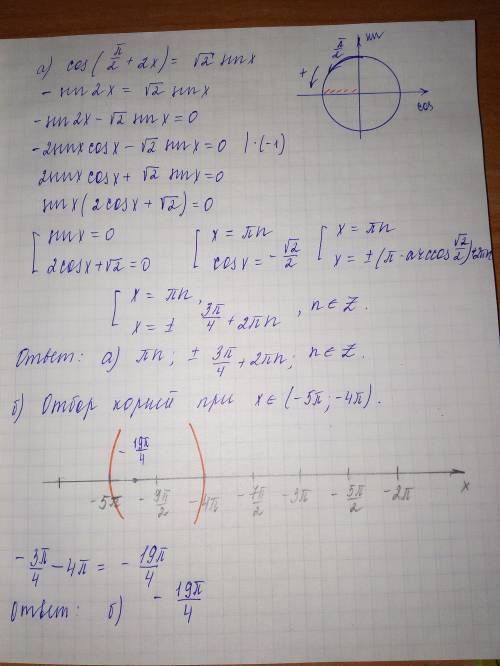 а) cos(π/2 + 2x) = √2 sin x
- sin 2x = √2 sin x
- sin 2x - √2 sin x = 0
- 2 sin x cos x - √2 sin x = 0 | · (-1)
2 sin x cos x + √2 sin x = 0
sin x (2 cos x + √2) = 0
[ sin x = 0 [ x = πn [ x = πn
2 cos x + √2 = 0 cos x = - √2/2 x = ± (π - arccos √2/2) + 2πn
[ x = πn,
x = ± 3π/4 + 2πn , n ∈ Z.
Ответ: а) πn; ± 3π/4 + 2πn; n ∈ Z.
б) Отбор корней при x ∈ (-5π; -4π).
- 19π/4
-5π - 9π/2 -4π - 7π/2 -3π - 5π/2 -2π x
- 3π/4 - 4π = - 19π/4
Ответ: б) - 19π/4
sin
π/2
+
cos